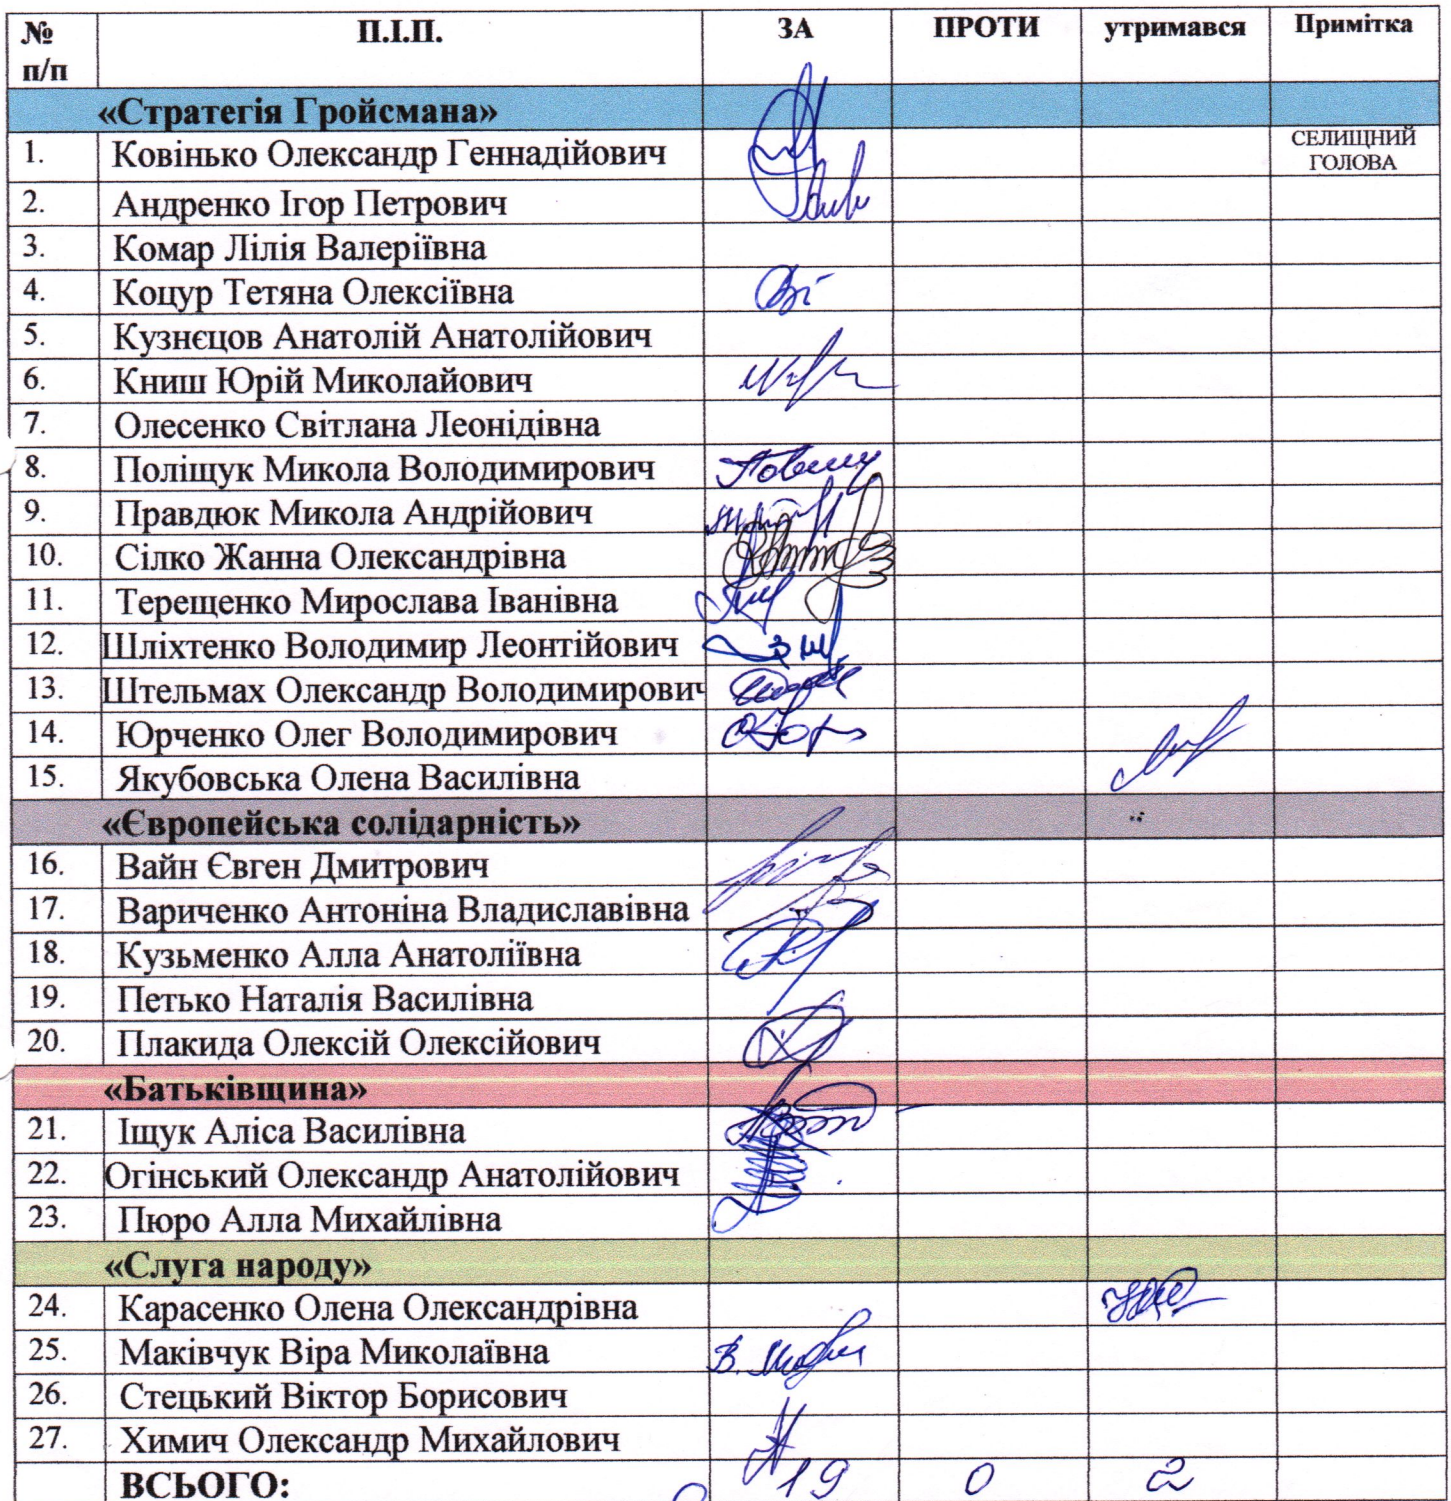 № п/п П.І.П. ЗА ПРОТИ утримався Примітка
«Стратегія Гройсмана»
1. Ковінько Олександр Геннадійович СЕЛИЩНИЙ ГОЛОВА
2. Андренко Ігор Петрович
3. Комар Лілія Валеріївна
4. Коцур Тетяна Олексіївна
5. Кузнєцов Анатолій Анатолійович
6. Книш Юрій Миколайович
7. Олесенко Світлана Леонідівна
8. Поліщук Микола Володимирович
9. Правдюк Микола Андрійович
10. Сілко Жанна Олександрівна
11. Терещенко Мирослава Іванівна
12. Шліхтенко Володимир Леонтійович
13. Штельмах Олександр Володимирович
14. Юрченко Олег Володимирович
15. Якубовська Олена Василівна
«Європейська солідарність»
16. Вайн Євген Дмитрович
17. Вариченко Антоніна Владиславівна
18. Кузьменко Алла Анатоліївна
19. Петько Наталія Василівна
20. Плакида Олексій Олексійович
«Батьківщина»
21. Іщук Аліса Василівна
22. Огінський Олександр Анатолійович
23. Пюро Алла Михайлівна
«Слуга народу»
24. Карасенко Олена Олександрівна
25. Маківчук Віра Миколаївна
26. Стецький Віктор Борисович
27. Химич Олександр Михайлович
ВСЬОГО: 19 0 2